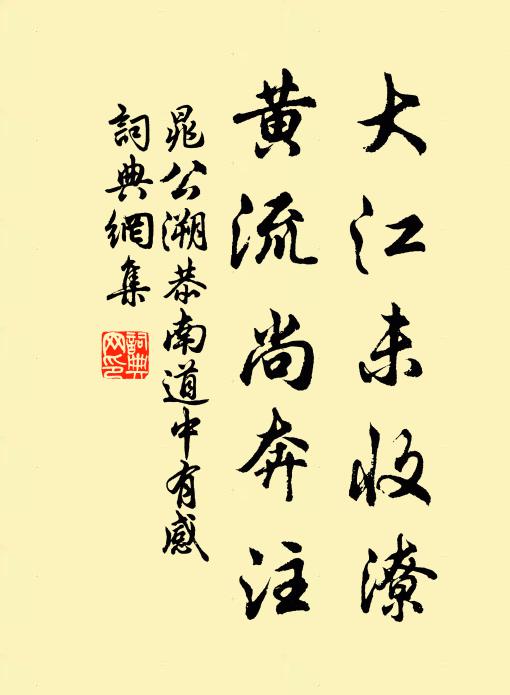 大江未收潦
黄流尚奔注
晁公溯恭南道中有感
詞典網集
詞典
网印